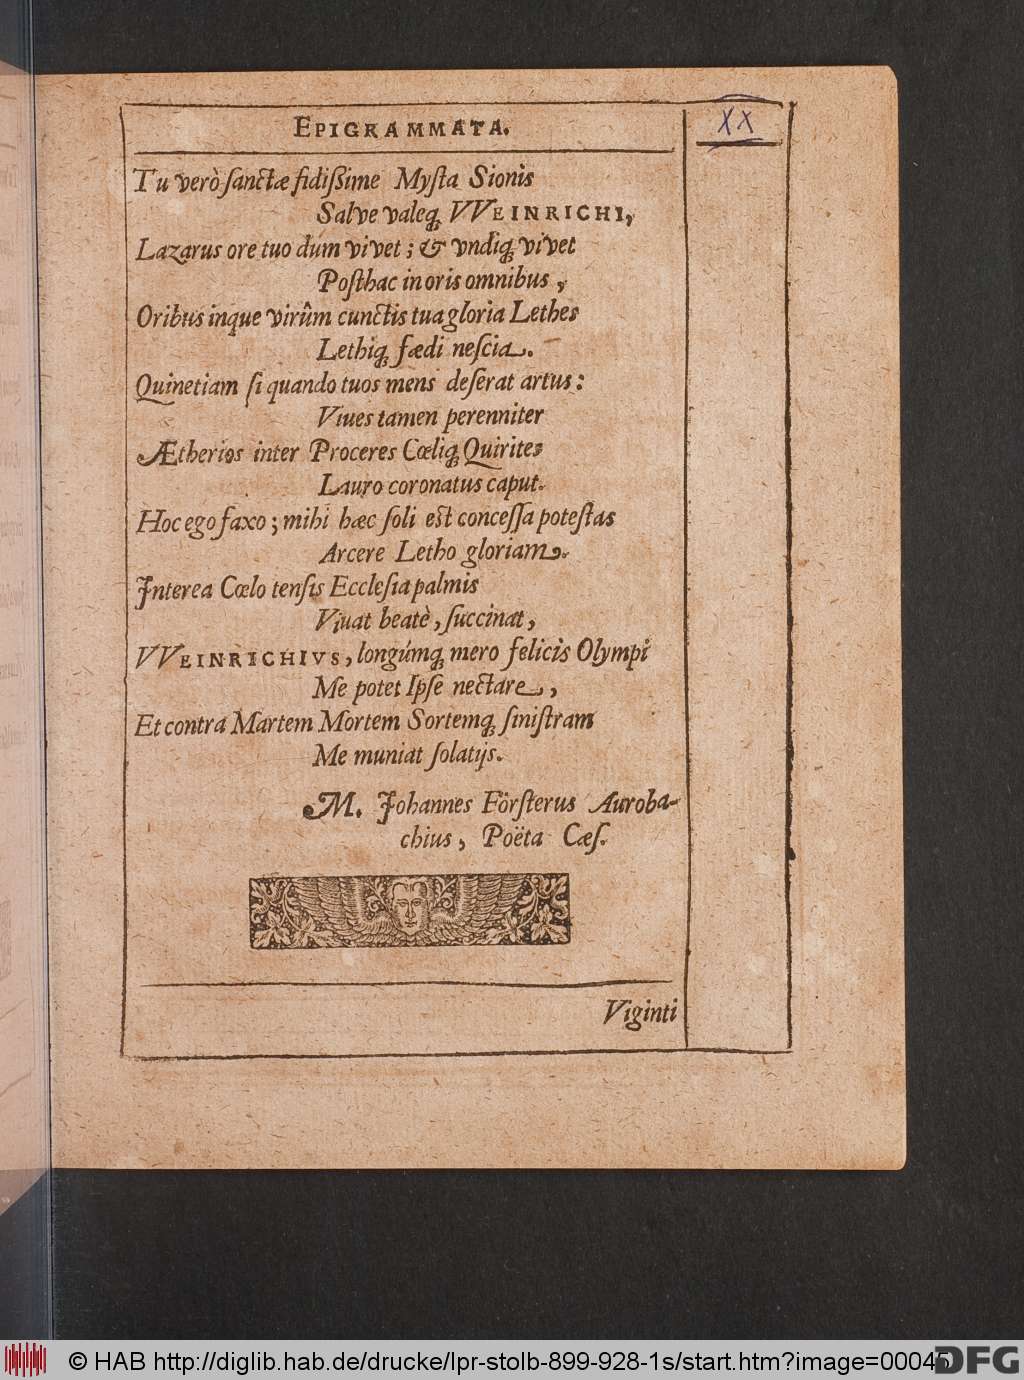 EPIGRAMMATA.
XX
Tu verò ſanctæ fidißime Myſta Sionis
Salve valeq; VVEINRICHI,
Lazarus ore tuo dum vivet; & vndiq; vivet
Poſthac in oris omnibus,
Oribus inque virûm cunctis tua gloria Lethes
Lethiq; fædi neſcia.
Quinetiam ſi quando tuos mens deſerat artus:
Viues tamen perenniter
Ætherios inter Proceres Cœliq; Quirites
Lauro coronatus caput.
Hoc ego faxo; mihi hæc ſoli est conceſſa poteſtas
Arcere Letho gloriam.
Interea Cœlo tenſis Eccleſia palmis
Viuat beatè, ſuccinat,
VVEINRICHIVS, longúmq; mero felicis Olympi
Me potet Ipſe nectare,
Et contra Martem Mortem Sortemq; ſiniſtram
Me muniat ſolatijs.
M. Johannes Förſterus Auroba-
chius, Poëta Cæſ.
Viginti
© HAB http://diglib.hab.de/drucke/lpr-stolb-899-928-1s/start.htm?image=00045
DFG